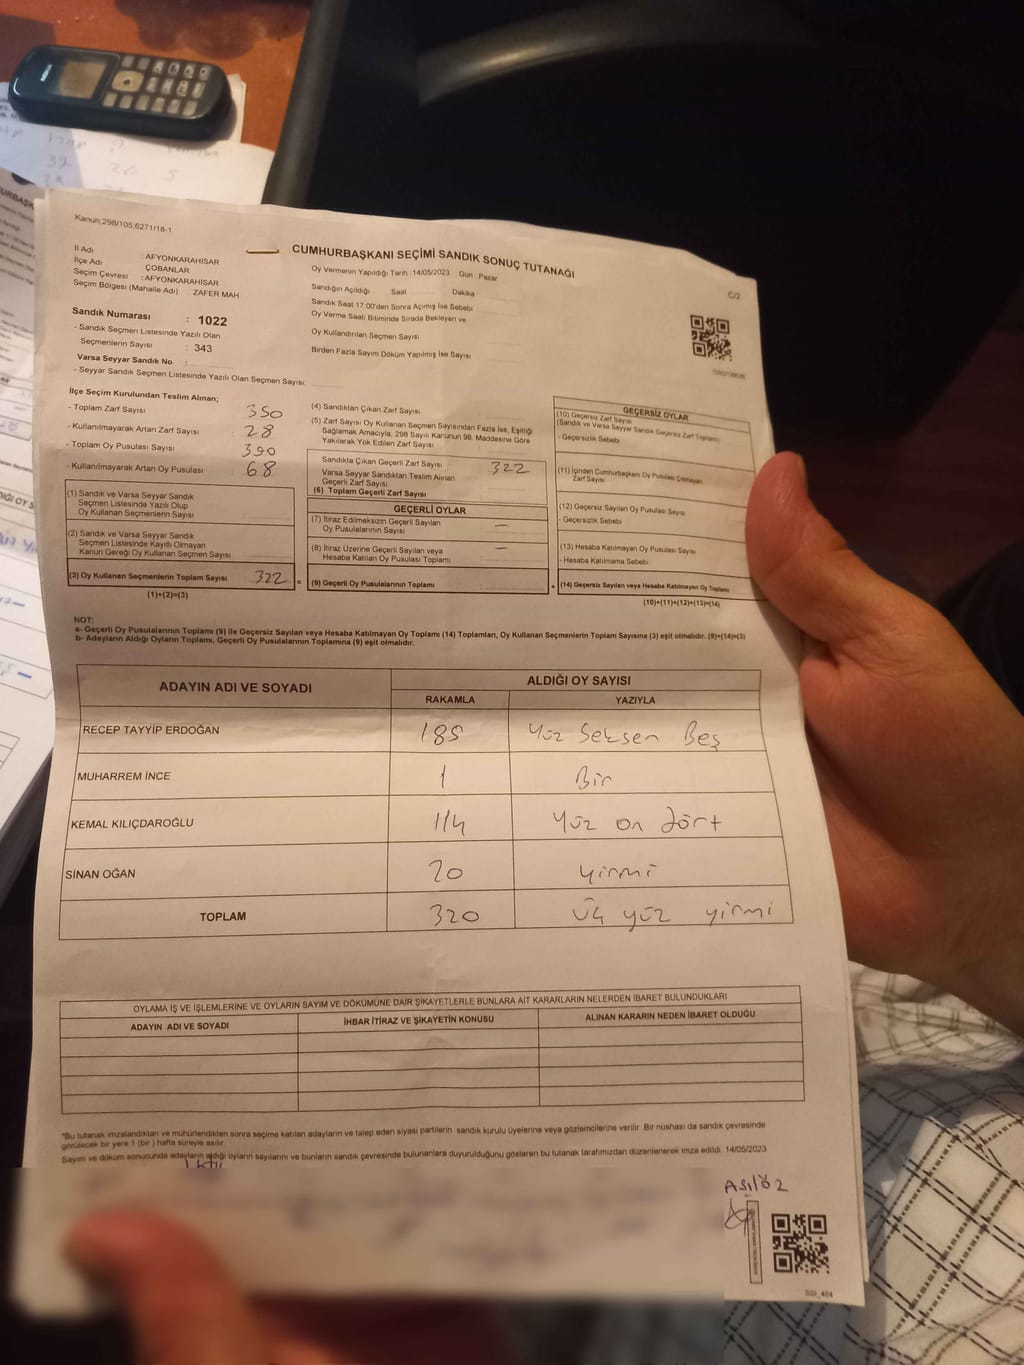 Kanun:298/105;6271/18-1
CUMHURBAŞKANI SEÇİMİ SANDIK SONUÇ TUTANAĞI
C/2
İl Adı : AFYONKARAHİSAR
İlçe Adı : ÇOBANLAR
Seçim Çevresi : AFYONKARAHİSAR
Seçim Bölgesi (Mahalle Adı) : ZAFER MAH
Sandık Numarası : 1022
- Sandık Seçmen Listesinde Yazılı Olan
Seçmenlerin Sayısı : 343
Varsa Seyyar Sandık No :
- Seyyar Sandık Seçmen Listesinde Yazılı Olan Seçmen Sayısı:
Oy Vermenin Yapıldığı Tarih :14/05/2023 Gün : Pazar
Sandığın Açıldığı Saat Dakika
Sandık Saat 17.00'den Sonra Açımış İse Sebebi
Oy Verme Saati Bitiminde Sırada Bekleyen ve
Oy Kullandırılan Seçmen Sayısı
Birden Fazla Sayım Döküm Yapılmış İse Sayısı
İlçe Seçim Kurulundan Teslim Alınan;
- Toplam Zarf Sayısı : 350
- Kullanılmayarak Artan Zarf Sayısı : 28
- Toplam Oy Pusulası Sayısı : 390
- Kullanılmayarak Artan Oy Pusulası : 68
(1) Sandık ve Varsa Seyyar Sandık
Seçmen Listesinde Yazılı Olup
Oy Kullanan Seçmenlerin Sayısı :
(2) Sandık ve Varsa Seyyar Sandık
Seçmen Listesinde Kayıtlı Olmayan
Kanun Gereği Oy Kullanan Seçmen Sayısı :
(3) Oy Kullanan Seçmenlerin Toplam Sayısı 322 =
(1)+(2)=(3)
(4) Sandıktan Çıkan Zarf Sayısı
(5) Zarf Sayısı Oy Kullanan Seçmen Sayısından Fazla İse, Eşitliği
Sağlamak Amacıyla, 298 Sayılı Kanunun 98. Maddesine Göre
Yakılarak Yok Edilen Zarf Sayısı
Sandıkta Çıkan Geçerli Zarf Sayısı : 322
Varsa Seyyar Sandıktan Teslim Alınan
Geçerli Zarf Sayısı
(6) Toplam Geçerli Zarf Sayısı
GEÇERLİ OYLAR
(7) İtiraz Edilmeksizin Geçerli Sayılan
Oy Pusulalarının Sayısı : —
(8) İtiraz Üzerine Geçerli Sayılan veya
Hesaba Katılan Oy Pusulası Toplamı : —
(9) Geçerli Oy Pusulalarının Toplamı +
GEÇERSİZ OYLAR
(10) Geçersiz Zarf Sayısı
(Sandık ve Varsa Seyyar Sandık Geçersiz Zarf Toplamı)
- Geçersizlik Sebebi
(11) İçinden Cumhurbaşkanı Oy Pusulası Çıkmayan
Zarf Sayısı
(12) Geçersiz Sayılan Oy Pusulası Sayısı
- Geçersizlik Sebebi
(13) Hesaba Katılmayan Oy Pusulası Sayısı
- Hesaba Katılmama Sebebi
(14) Geçersiz Sayılan veya Hesaba Katılmayan Oy Toplamı
(10)+(11)+(12)+(13)=(14)
NOT:
a- Geçerli Oy Pusulalarının Toplamı (9) ile Geçersiz Sayılan veya Hesaba Katılmayan Oy Toplamı (14) Toplamları, Oy Kullanan Seçmenlerin Toplam Sayısına (3) eşit olmalıdır. (9)+(14)=(3)
b- Adayların Aldığı Oyların Toplamı, Geçerli Oy Pusulalarının Toplamına (9) eşit olmalıdır.
ADAYIN ADI VE SOYADI
ALDIĞI OY SAYISI
RAKAMLA YAZIYLA
RECEP TAYYİP ERDOĞAN 185 Yüz Seksen Beş
MUHARREM İNCE 1 Bir
KEMAL KILIÇDAROĞLU 114 Yüz on dört
SİNAN OĞAN 20 yirmi
TOPLAM 320 Üç yüz yirmi
OYLAMA İŞ VE İŞLEMLERİNE VE OYLARIN SAYIM VE DÖKÜMÜNE DAİR ŞİKAYETLERLE BUNLARA AİT KARARLARIN NELERDEN İBARET BULUNDUKLARI
ADAYIN ADI VE SOYADI İHBAR İTİRAZ VE ŞİKAYETİN KONUSU ALINAN KARARIN NEDEN İBARET OLDUĞU
*Bu tutanak imzalandıktan ve mühürlendikten sonra seçime katılan adayların ve talep eden siyasi partilerin sandık kurulu üyelerine veya gözlemcilerine verilir. Bir nüshası da sandık çevresinde
görülecek bir yere 1 (bir) hafta süreyle asılır.
Sayım ve döküm sonucunda adayların aldığı oyların sayılarını ve bunların sandık çevresinde bulunanlara duyurulduğunu gösteren bu tutanak tarafımızdan düzenlenerek imza edildi. 14/05/2023